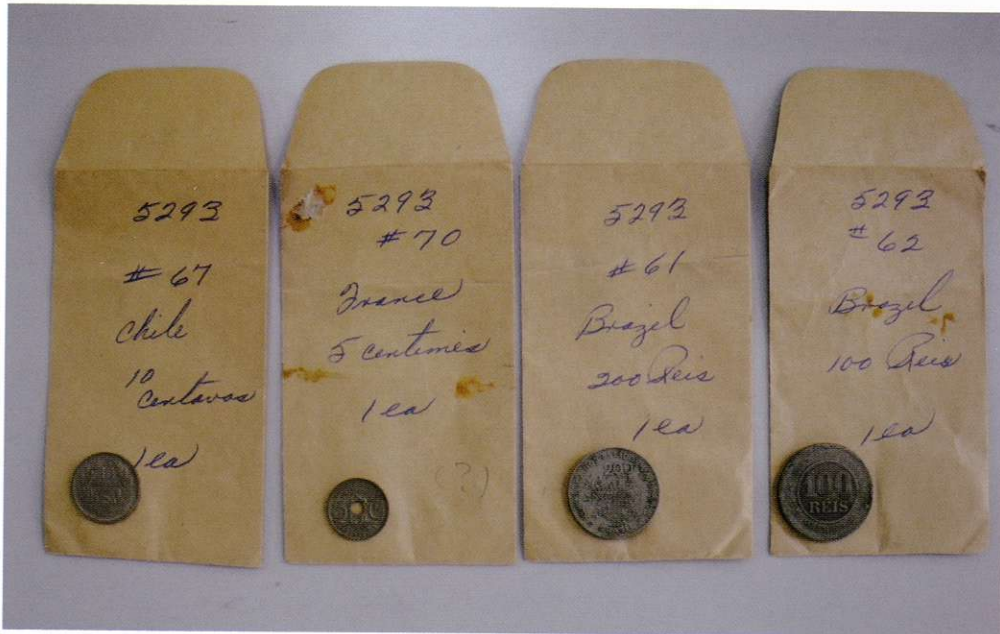 5293
#67
Chile
10
Centavos
1 ea
5293
#70
France
5 Centimes
1 ea
(?)
5293
#61
Brazil
200 Reis
1 ea
200
5293
#62
Brazil
100 Reis
1 ea
100
REIS